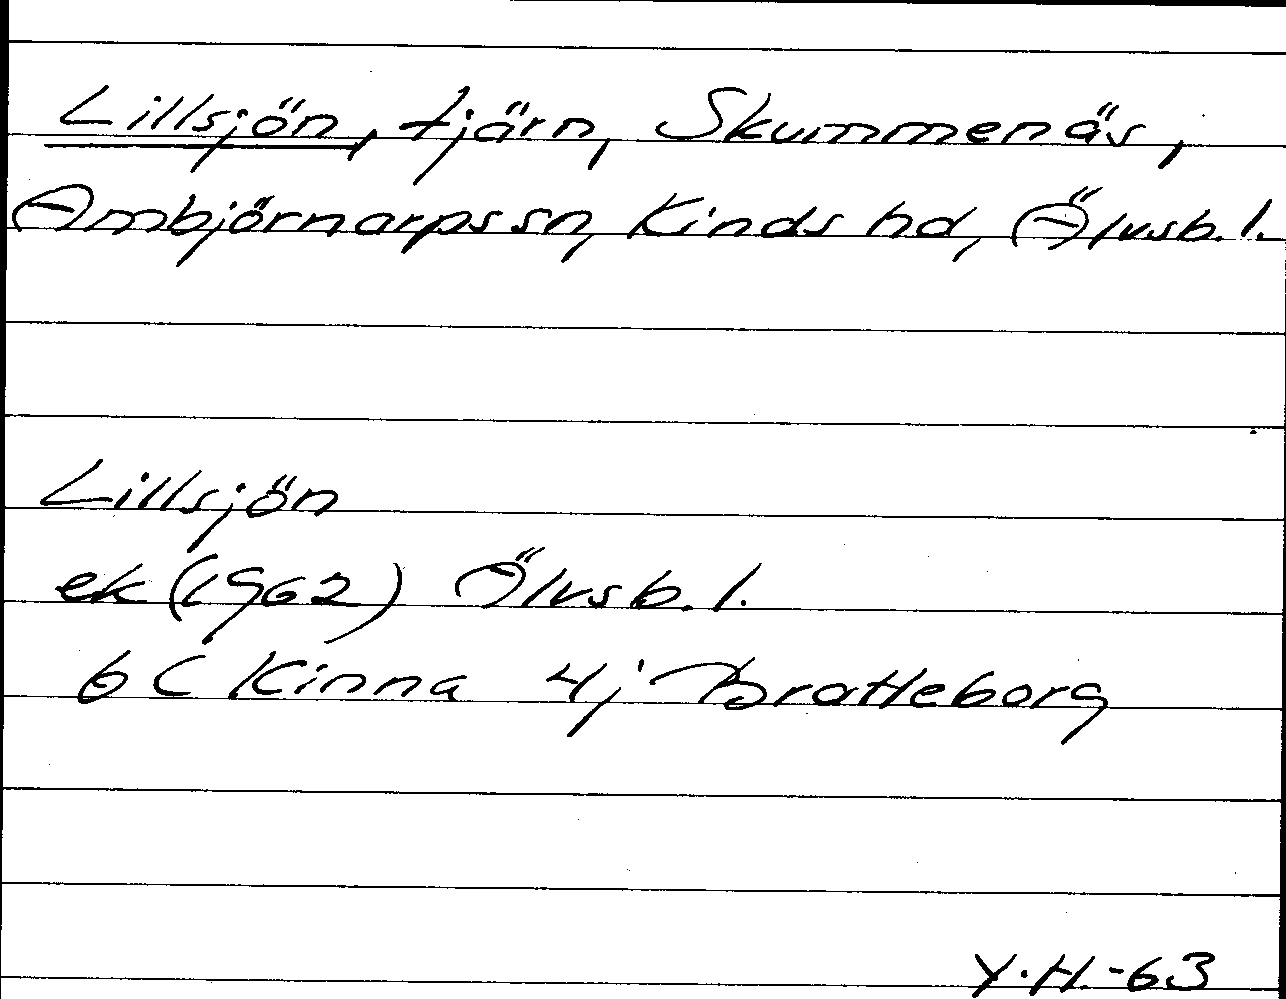 Lillsjön, tjärn, Skummenäs,
Ambjörnarps sn, Kinds hd, Älvsb. l.
Lillsjön
ek (1962) Älvsb. l.
6 C Kinna 4j Bratteborg
Y.H.-63